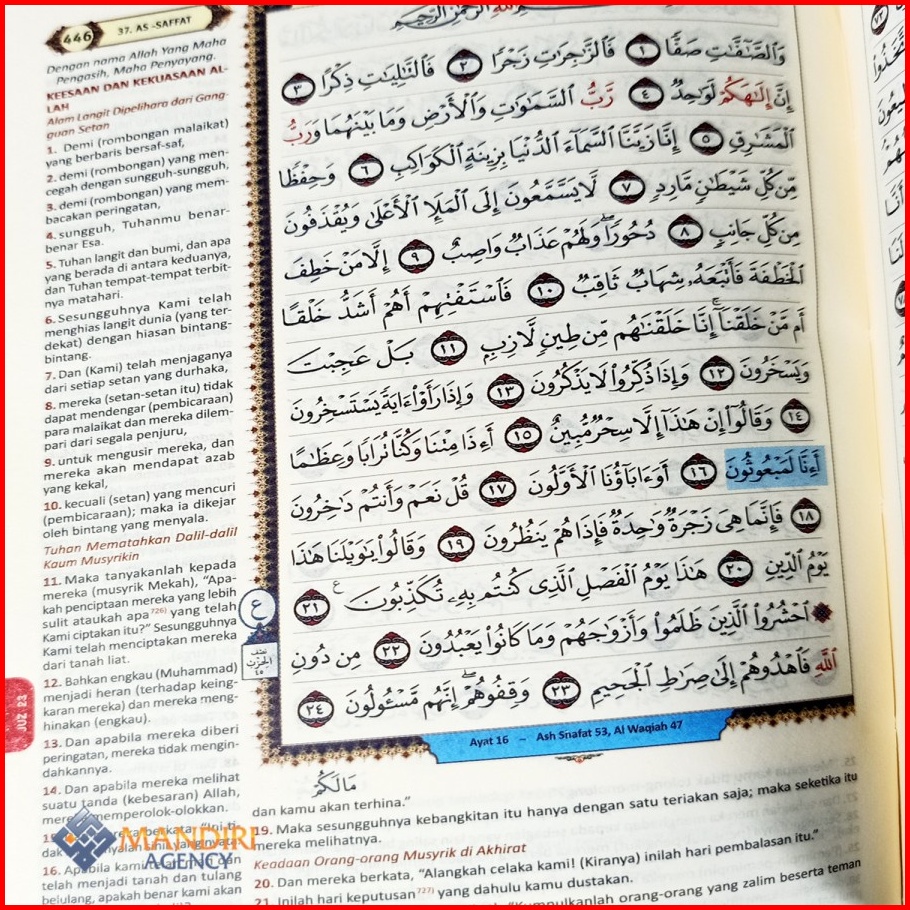 446
37. AS -SAFFAT
Dengan nama Allah Yang Maha
Pengasih, Maha Penyayang.
KEESAAN DAN KEKUASAAN AL-
LAH
Alam Langit Dipelihara dari Gang-
guan Setan
1. Demi (rombongan malaikat)
yang berbaris bersaf-saf,
2. demi (rombongan) yang men-
cegah dengan sungguh-sungguh,
3. demi (rombongan) yang mem-
bacakan peringatan,
4. sungguh, Tuhanmu benar-
benar Esa.
5. Tuhan langit dan bumi, dan apa
yang berada di antara keduanya,
dan Tuhan tempat-tempat terbit-
nya matahari.
6. Sesungguhnya Kami telah
menghias langit dunia (yang ter-
dekat) dengan hiasan bintang-
bintang.
7. Dan (Kami) telah menjaganya
dari setiap setan yang durhaka,
8. mereka (setan-setan itu) tidak
dapat mendengar (pembicaraan)
para malaikat dan mereka dilem-
pari dari segala penjuru,
9. untuk mengusir mereka, dan
mereka akan mendapat azab
yang kekal,
10. kecuali (setan) yang mencuri
(pembicaraan); maka ia dikejar
oleh bintang yang menyala.
Tuhan Mematahkan Dalil-dalil
Kaum Musyrikin
11. Maka tanyakanlah kepada
mereka (musyrik Mekah), “Apa-
kah penciptaan mereka yang lebih
sulit ataukah apa726) yang telah
Kami ciptakan itu?” Sesungguhnya
Kami telah menciptakan mereka
dari tanah liat.
12. Bahkan engkau (Muhammad)
menjadi heran (terhadap keing-
karan mereka) dan mereka meng-
hinakan (engkau).
13. Dan apabila mereka diberi
peringatan, mereka tidak mengin-
dahkannya.
14. Dan apabila mereka melihat
suatu tanda (kebesaran) Allah,
memperolok-olokkan.
16. Apabila
telah menjadi tanah dan tulang
belulang, apakah benar kami akan
JUZ 23
وَٱلصَّـٰٓفَّـٰتِ صَفًّا ١ فَٱلزَّٰجِرَٰتِ زَجْرًا ٢ فَٱلتَّـٰلِيَـٰتِ ذِكْرًا ٣
إِنَّ إِلَـٰهَكُمْ لَوَٰحِدٌ ٤ رَّبُّ ٱلسَّمَـٰوَٰتِ وَٱلْأَرْضِ وَمَا بَيْنَهُمَا وَرَبُّ
ٱلْمَشَـٰرِقِ ٥ إِنَّا زَيَّنَّا ٱلسَّمَآءَ ٱلدُّنْيَا بِزِينَةٍ ٱلْكَوَاكِبِ ٦ وَحِفْظًا
مِّن كُلِّ شَيْطَـٰنٍ مَّارِدٍ ٧ لَّا يَسَّمَّعُونَ إِلَى ٱلْمَلَإِ ٱلْأَعْلَىٰ وَيُقْذَفُونَ
مِن كُلِّ جَانِبٍ ٨ دُحُورًا وَلَهُمْ عَذَابٌ وَاصِبٌ ٩ إِلَّا مَنْ خَطِفَ
ٱلْخَطْفَةَ فَأَتْبَعَهُۥ شِهَابٌ ثَاقِبٌ ١٠ فَٱسْتَفْتِهِمْ أَهُمْ أَشَدُّ خَلْقًا
أَم مَّنْ خَلَقْنَآ إِنَّا خَلَقْنَـٰهُم مِّن طِينٍ لَّازِبٍ ١١ بَلْ عَجِبْتَ
وَيَسْخَرُونَ ١٢ وَإِذَا ذُكِّرُوا۟ لَا يَذْكُرُونَ ١٣ وَإِذَا رَأَوْا۟ ءَايَةً يَسْتَسْخِرُونَ
١٤ وَقَالُوٓا۟ إِنْ هَـٰذَآ إِلَّا سِحْرٌ مُّبِينٌ ١٥ أَءِذَا مِتْنَا وَكُنَّا تُرَابًا وَعِظَـٰمًا
أَءِنَّا لَمَبْعُوثُونَ ١٦ أَوَءَابَآؤُنَا ٱلْأَوَّلُونَ ١٧ قُلْ نَعَمْ وَأَنتُمْ دَٰخِرُونَ
١٨ فَإِنَّمَا هِىَ زَجْرَةٌ وَٰحِدَةٌ فَإِذَا هُمْ يَنظُرُونَ ١٩ وَقَالُوا۟ يَـٰوَيْلَنَا هَـٰذَا
يَوْمُ ٱلدِّينِ ٢٠ هَـٰذَا يَوْمُ ٱلْفَصْلِ ٱلَّذِى كُنتُم بِهِۦ تُكَذِّبُونَ ٢١
ٱحْشُرُوا۟ ٱلَّذِينَ ظَلَمُوا۟ وَأَزْوَٰجَهُمْ وَمَا كَانُوا۟ يَعْبُدُونَ ٢٢ مِن دُونِ
ٱللَّهِ فَٱهْدُوهُمْ إِلَىٰ صِرَٰطِ ٱلْجَحِيمِ ٢٣ وَقِفُوهُمْ إِنَّهُم مَّسْـُٔولُونَ ٢٤
ع
نصف
الحزب
٤٥
Ayat 16 – Ash Shafat 53, Al Waqiah 47
مَا لَكُمْ
dan kamu akan terhina.”
19. Maka sesungguhnya kebangkitan itu hanya dengan satu teriakan saja; maka seketika itu
mereka melihatnya.
Keadaan Orang-orang Musyrik di Akhirat
20. Dan mereka berkata, “Alangkah celaka kami! (Kiranya) inilah hari pembalasan itu.”
21. Inilah hari keputusan727) yang dahulu kamu dustakan.
“Kumpulkanlah orang-orang yang zalim beserta teman
MANDIRI
AGENCY